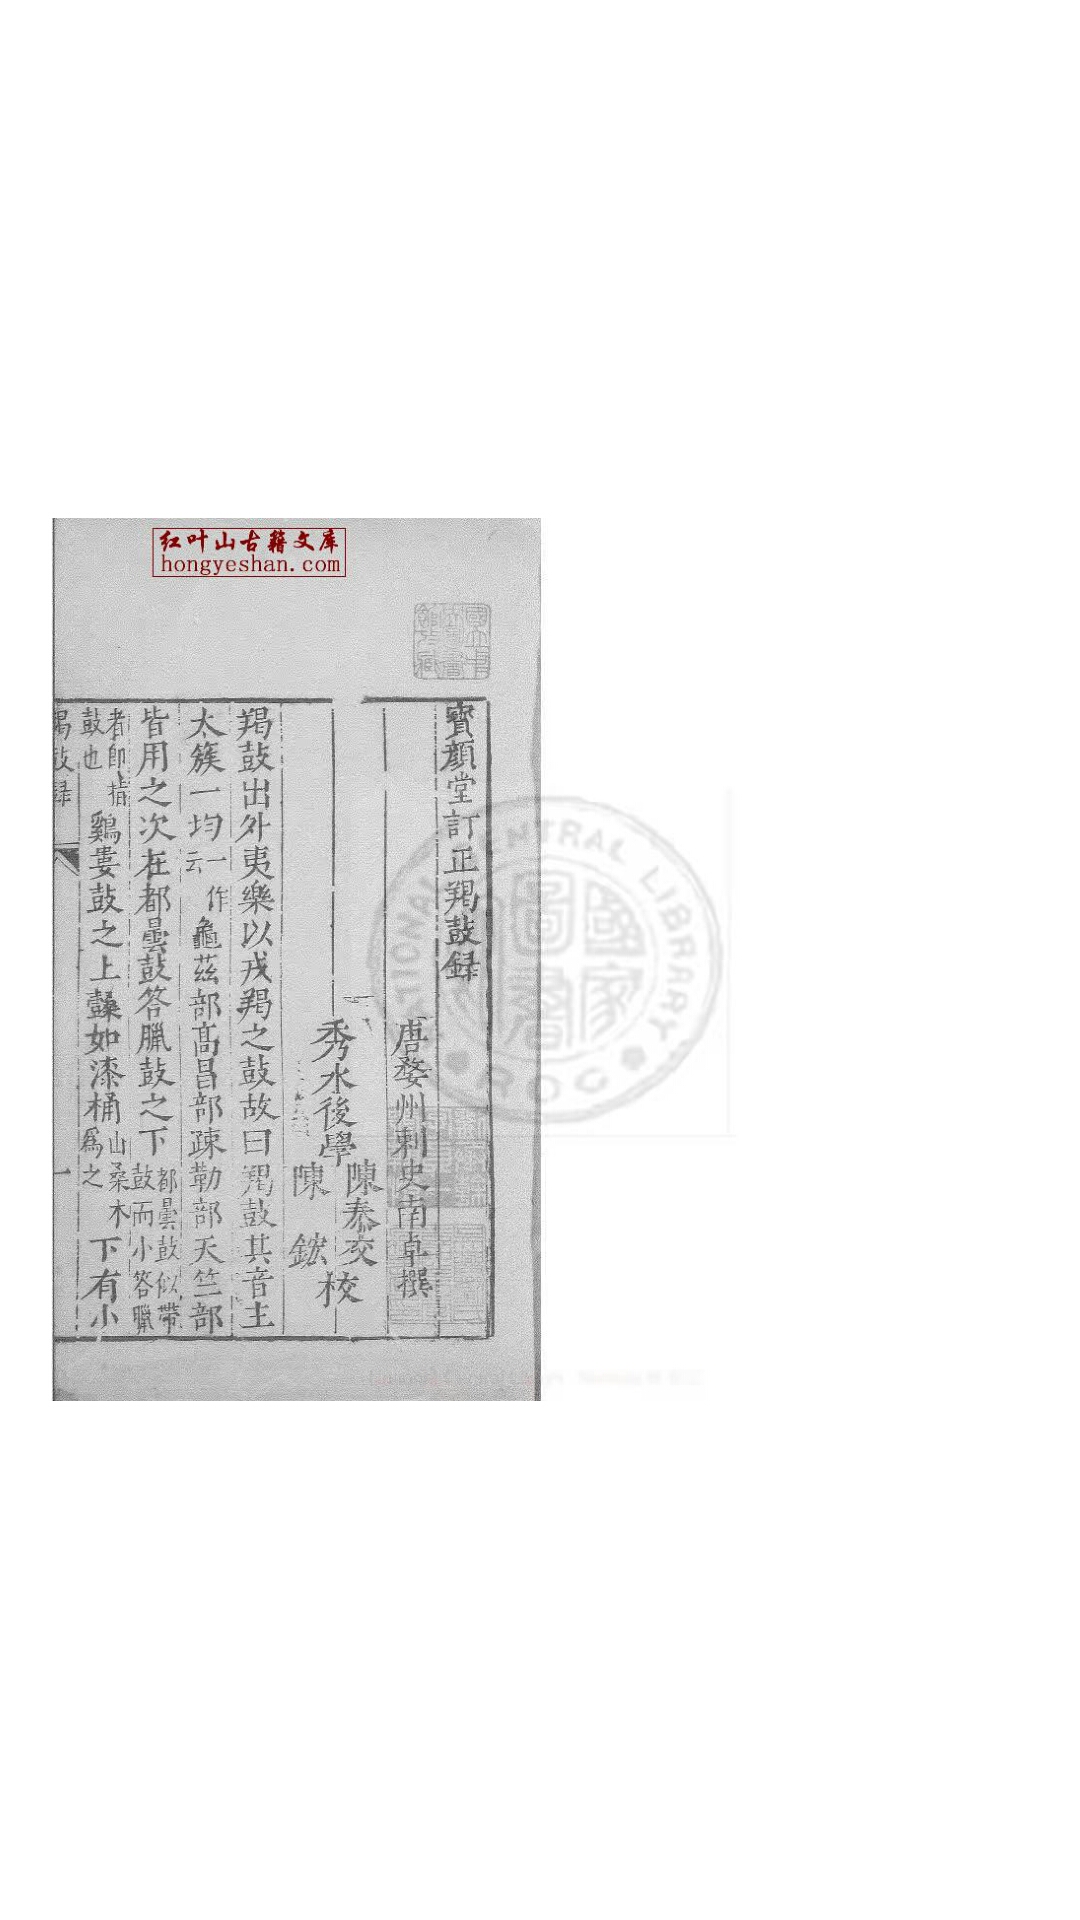 红叶山古籍文库
hongyeshan.com
寳顔堂訂正羯鼓録
唐婺州刺史南卓撰
秀水後學
陳泰交
陳 鋐
校
羯鼓出外夷樂以戎羯之鼓故曰羯鼓其音主
太簇一均一作云龜茲部高昌部疎勒部天竺部
皆用之次在都曇鼓答臘鼓之下都曇鼓似帶鼓而小答臘
者即揩鼓也鷄婁鼓之上𪔣如漆桶山桑木爲之下有小
羯鼓録
一
NATIONAL CENTRAL LIBRARY
ROC
國家圖書